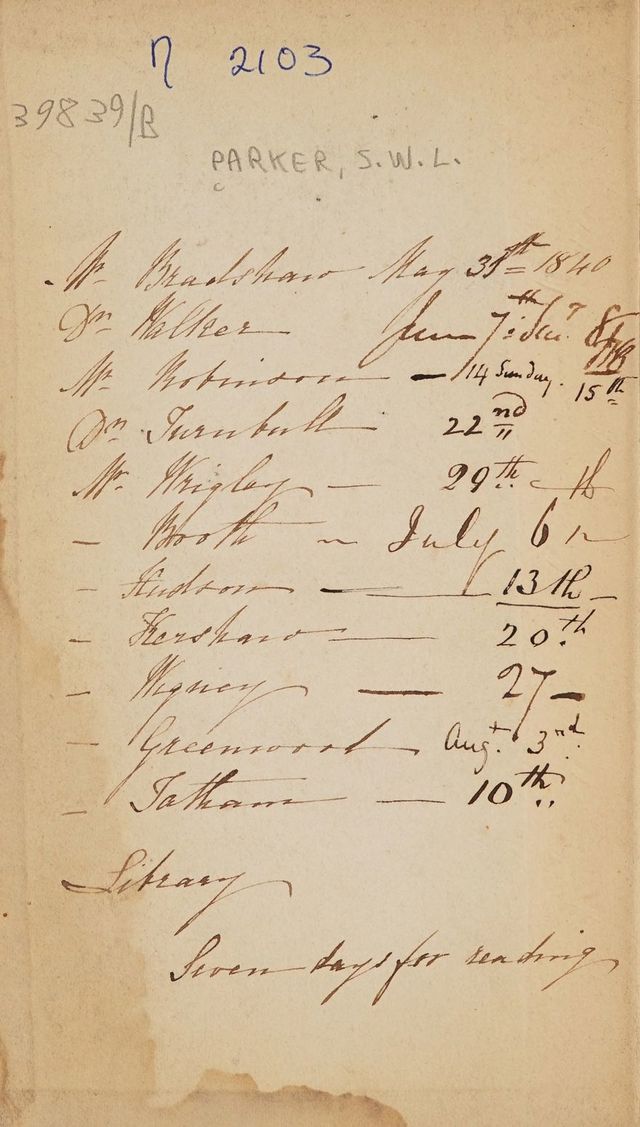 η 2103
39839/B
PARKER, S.W.L.
Mr Bradshaw May 31th 1840
Dr Walker June 7th
Mr Robinson - 14 Sunday. 15th
Dr Turnbull 22nd
Mr Wrigley - 29th
- Booth - July 6
- Hudson - 13th -
- Kershaw - 20th
- Wigney - 27 -
- Greenwood Augt. 3rd.
- Tatham - 10th
Library
Seven days for reading